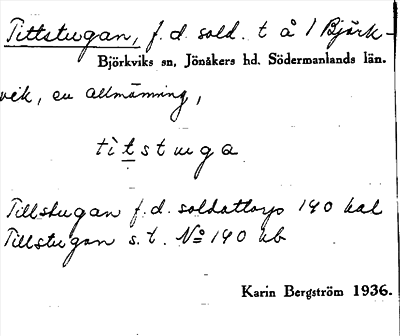 Tittstugan, f. d. sold. t å / Björk-
Björkviks sn, Jönåkers hd. Södermanlands län.
vik, en allmänning,
titstuga
Tillstugan f. d. soldattorp 140 kal
Tillstugan s. t. No 140 hb
Karin Bergström 1936.